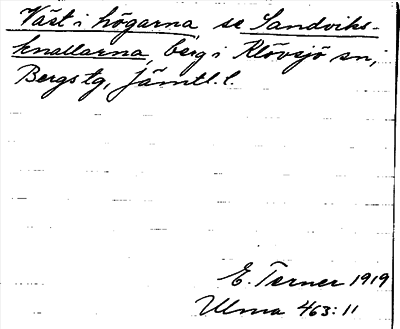 Väst i högarna, se Sandviks-
knallarna, berg i Klövsjö sn,
Bergs tg, Jämtl. l.
E. Terner 1919
Ulma 463:11